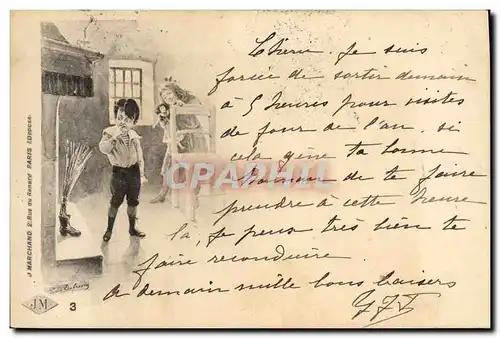 Chérie. Je suis
forcée de sortir demain
à 5 heures pour visites
de jour de l'an. si
cela gêne ta bonne
Maman de te faire
prendre à cette heure
là, je peux très bien te
faire reconduire
à demain mille bons baisers
CPARAMA.COM
J MARCHAND. 2. Rue du Renard PARIS (Déposé.
JM
3